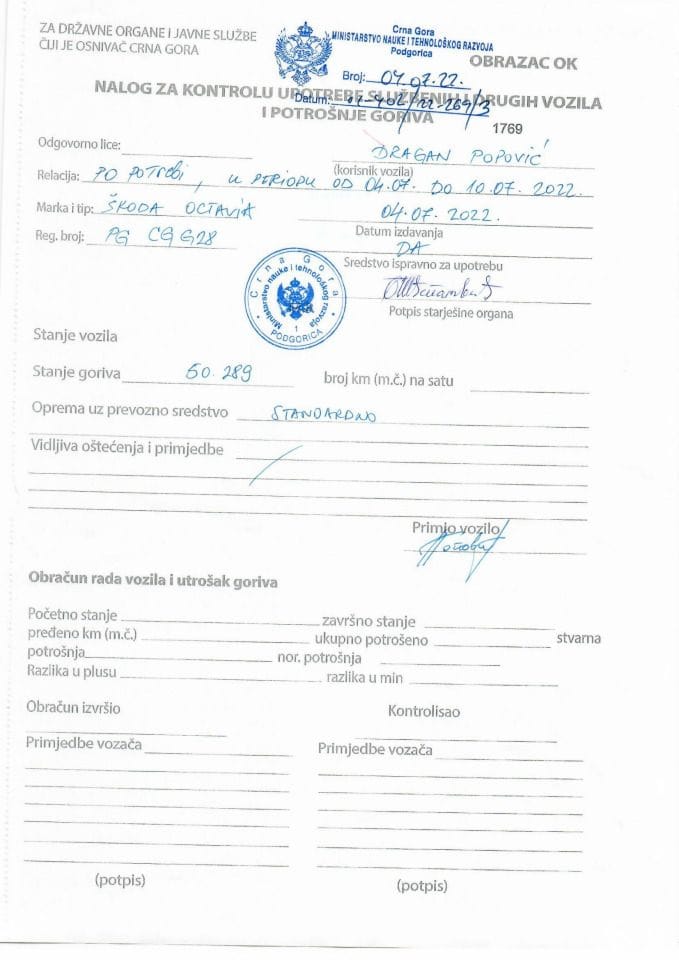 ZA DRŽAVNE ORGANE I JAVNE SLUŽBE
ČIJI JE OSNIVAČ CRNA GORA
Crna Gora
MINISTARSTVO NAUKE I TEHNOLOŠKOG RAZVOJA
Podgorica
OBRAZAC OK
Broj: 04.07.22.
NALOG ZA KONTROLU UPOTREBE SLUŽBENIH I DRUGIH VOZILA
Datum: 01-402/22-269/3
I POTROŠNJE GORIVA
1769
Odgovorno lice:
DRAGAN POPOVIĆ
(korisnik vozila)
Relacija: PO POTREBI, U PERIODU OD 04.07. DO 10.07.2022.
Marka i tip: ŠKODA OCTAVIA
04.07.2022.
Datum izdavanja
Reg. broj: PG CG G28
DA
Sredstvo ispravno za upotrebu
Potpis starješine organa
Crna Gora
Ministarstvo nauke i tehnološkog razvoja
1
PODGORICA
Stanje vozila
Stanje goriva 60.289 broj km (m.č.) na satu
Oprema uz prevozno sredstvo STANDARDNO
Vidljiva oštećenja i primjedbe
Primio vozilo
Obračun rada vozila i utrošak goriva
Početno stanje završno stanje
pređeno km (m.č.) ukupno potrošeno stvarna
potrošnja nor. potrošnja
Razlika u plusu razlika u min
Obračun izvršio Kontrolisao
Primjedbe vozača Primjedbe vozača
(potpis) (potpis)